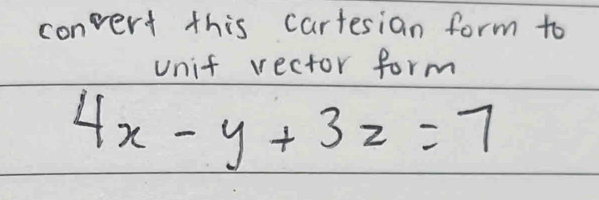 convert this cartesian form to
unit vector form
4x - y + 3z = 7